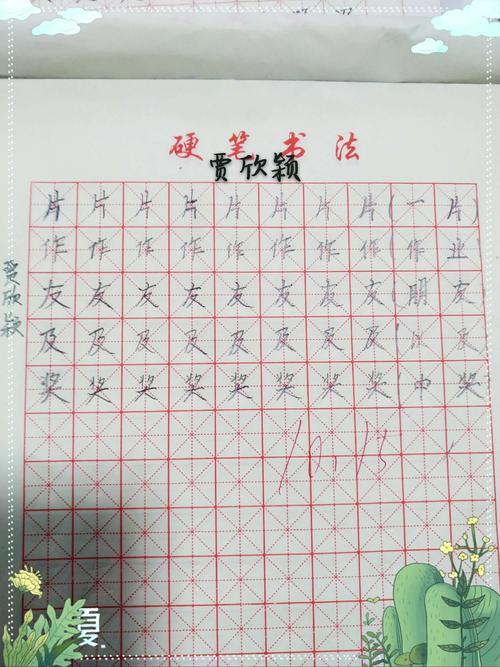 硬笔书法
贾欣颖
片片片片片片片片(一片)
作作作作作作作作(作业
友友友友友友友友(朋友
及及及及及及及及(以及
奖奖奖奖奖奖奖奖(中奖
贾欣颖
10.18
夏.